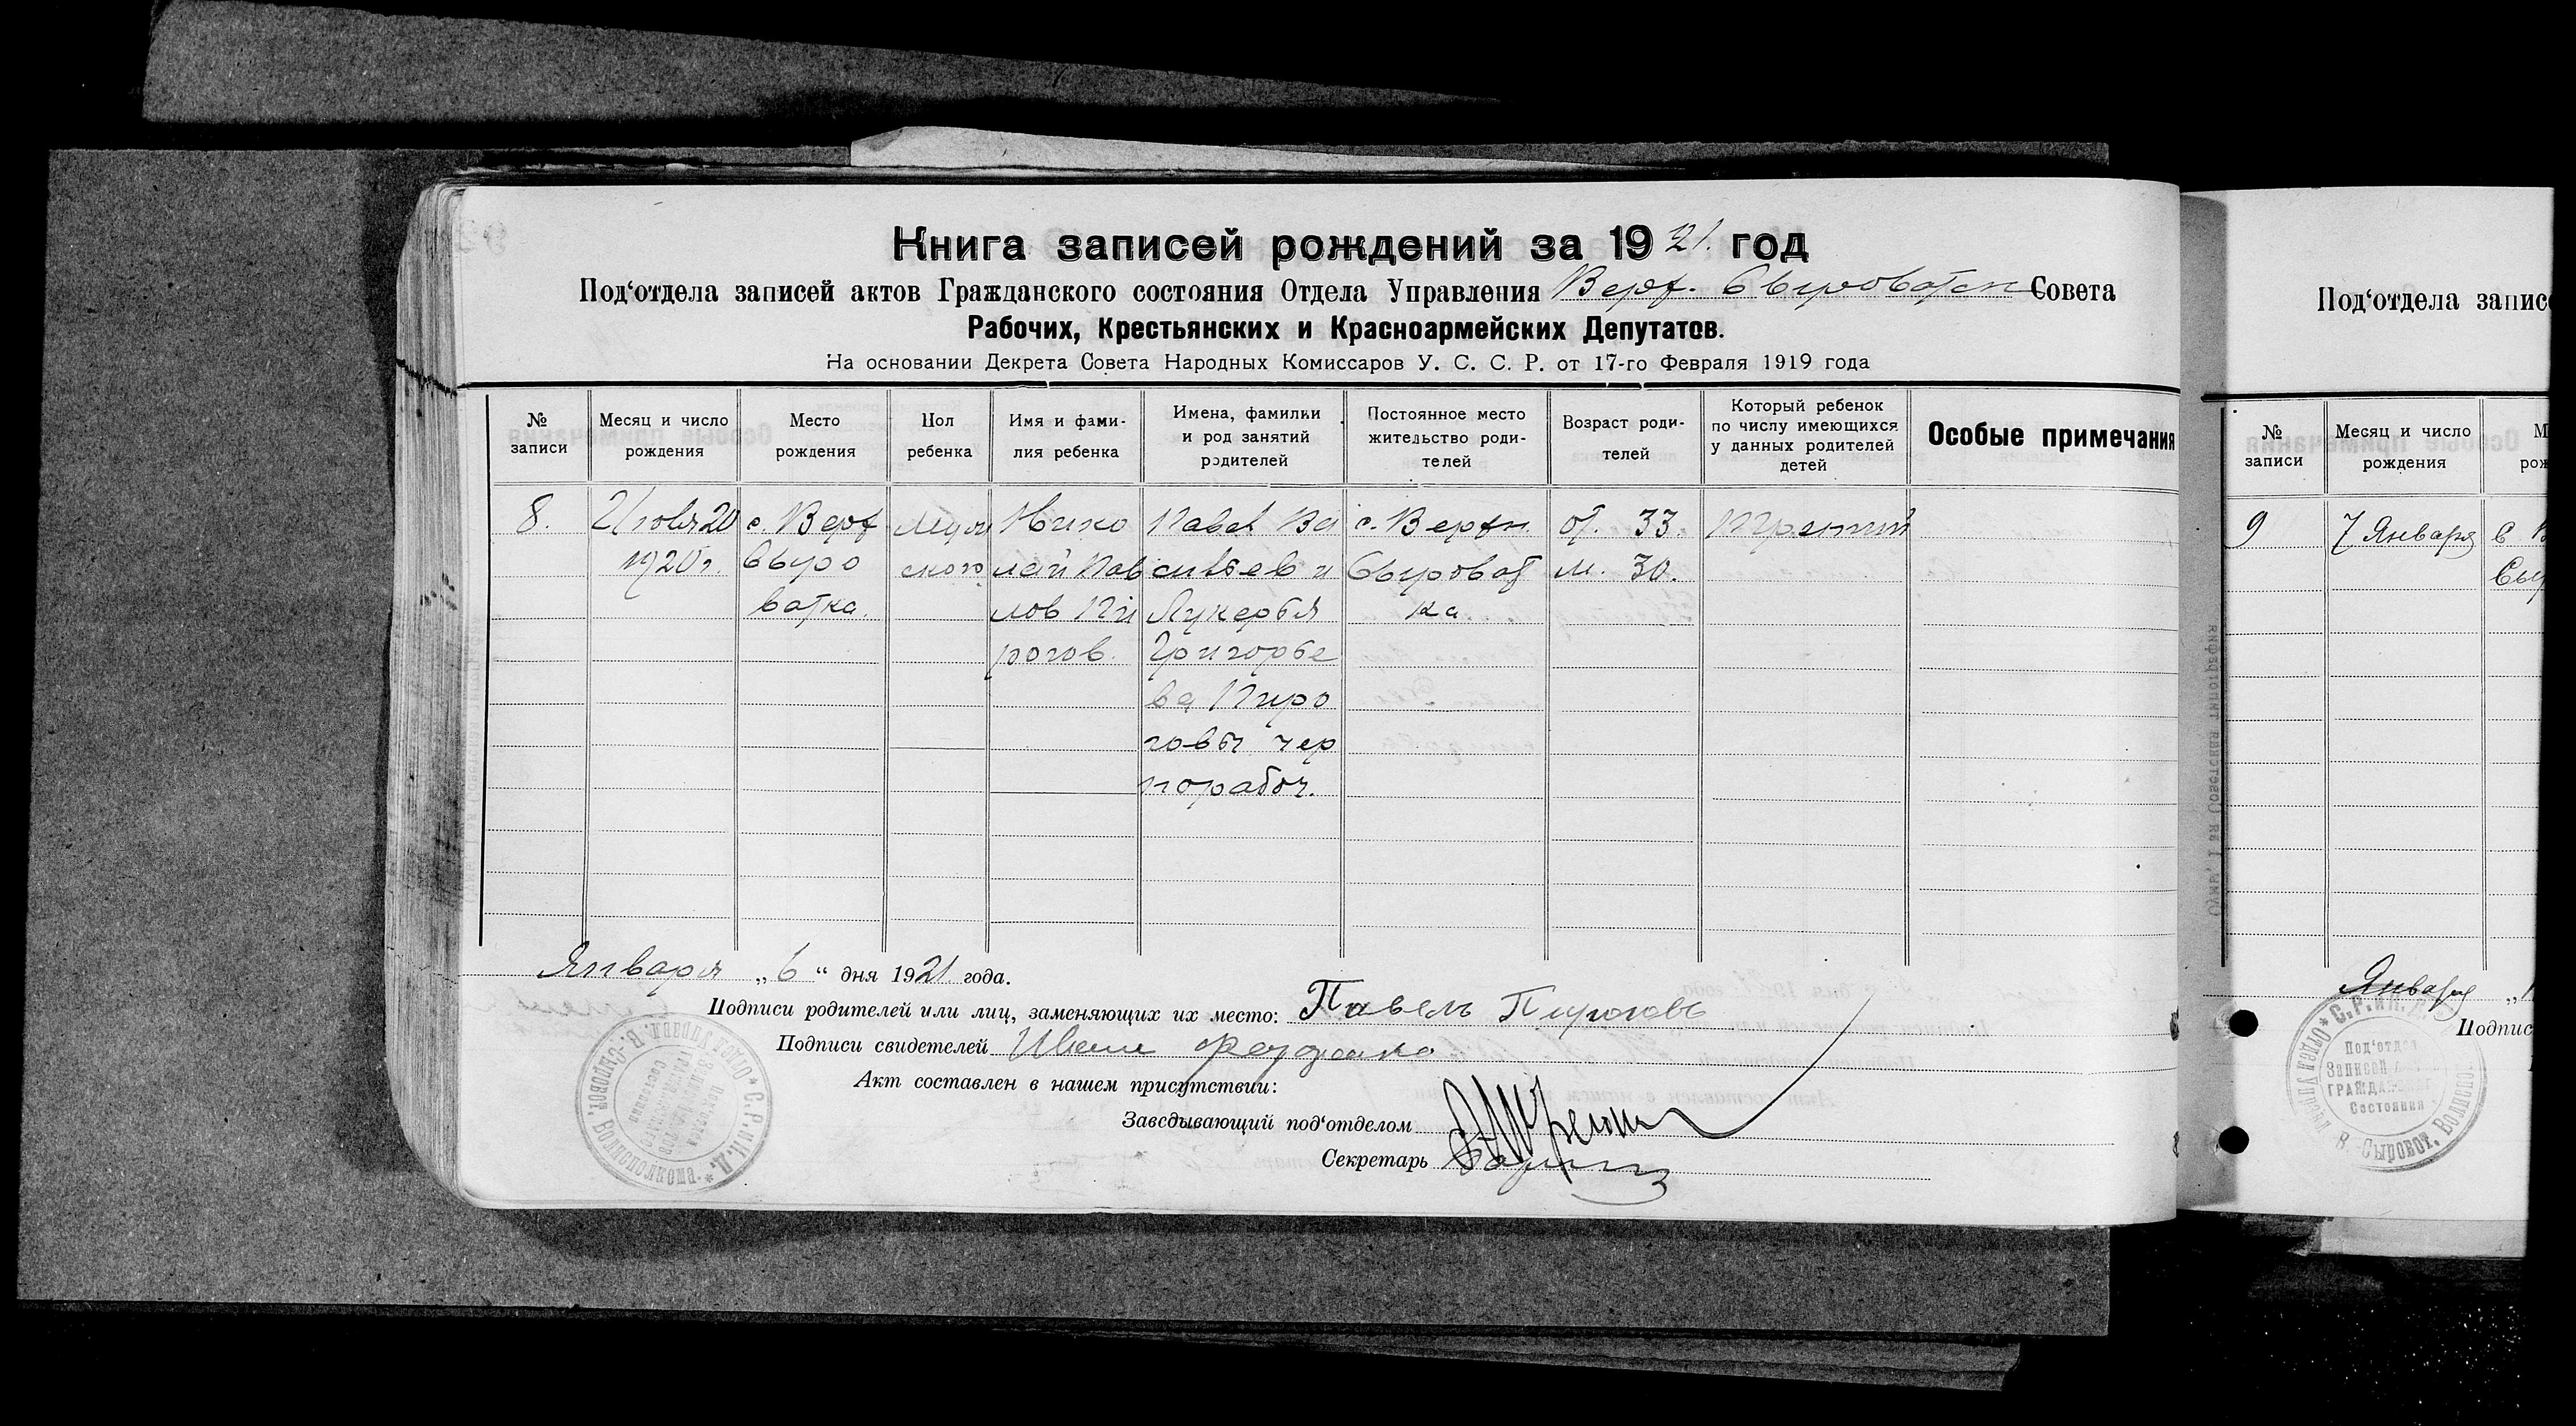 Книга записей рождений за 1921. год
Под‘отдела записей актов Гражданского состояния Отдела Управления Верх. Сыроватск Совета
Рабочих, Крестьянских и Красноармейских Депутатов.
На основании Декрета Совета Народных Комиссаров У. С. С. Р. от 17-го Февраля 1919 года
№ записи
Месяц и число рождения
Место рождения
Пол ребенка
Имя и фами-
лия ребенка
Имена, фамилки
и род занятий
родителей
Постоянное место
жительство роди-
телей
Возраст роди-
телей
Который ребенок
по числу имеющихся
у данных родителей
детей
Особые примечания
8.
1920 г.
с. Верх
Сыро
ватка.
Муж
ского
Нико
лай Пав
лов Пи
рогов.
Павел Ва
сильев и
Лукерья
Григорье
ва Пиро
говы чер
норабоч.
с. Верхн.
Сыроват
ка
от. 33.
м. 30.
Третий
Января „6“ дня 1921 года.
Подписи родителей или лиц, заменяющих их место: Павелъ Пироговъ
Подписи свидетелей Иван
Акт составлен в нашем присутствии:
Заведывающий под‘отделом
Секретарь
Под‘отдела записе
№ записи
Месяц и число рождения
9
7 Января
с В
Сыр
Января
Подпис
Под‘отдел
Записей
ГРАЖДАН
Состояния
В.-Сыровот. Волиспо.